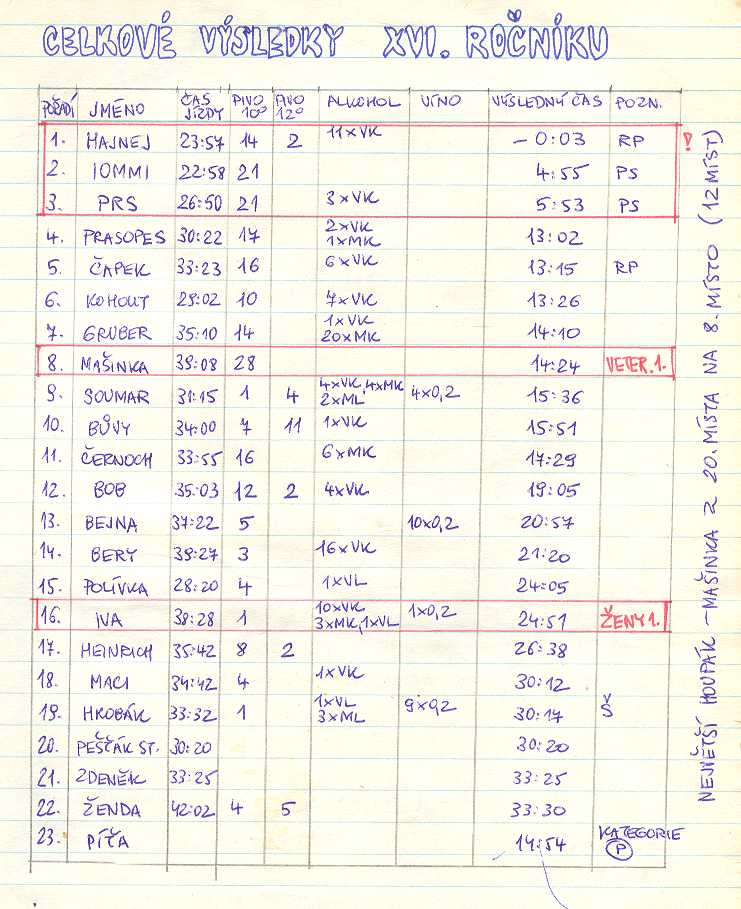 CELKOVÉ VÝSLEDKY XVI. ROČNÍKU
POŘADÍ JMÉNO ČAS JÍZDY PIVO 10° PIVO 12° ALKOHOL VÍNO VÝSLEDNÝ ČAS POZN.
1. HAJNEJ 23:57 14 2 11xVK -0:03 RP !
2. IOMMI 22:58 21 4:55 PS
3. PRS 26:50 21 3xVK 5:53 PS
4. PRASOPES 30:22 17 2xVK 1xMK 13:02
5. ČAPEK 33:23 16 6xVK 13:15 RP
6. KOHOUT 29:02 10 7xVK 13:26
7. GRUBER 35:10 14 1xVK 20xMK 14:10
8. MAŠINKA 39:08 28 14:24 VETER.1.
9. SOUMAR 31:15 1 4 4xVK, 4xMK 2xML 4x0,2 15:36
10. BŮVY 34:00 7 11 1xVK 15:51
11. ČERNOCH 33:55 16 6xMK 17:29
12. BOB 35:03 12 2 4xVK 19:05
13. BEJNA 37:22 5 10x0,2 20:57
14. BERY 39:27 3 16xVK 21:20
15. POLÍVKA 28:20 4 1xVL 24:05
16. IVA 38:28 1 10xVK 3xMK, 1xVL 1x0,2 24:51 ŽENY 1.
17. HEINRICH 35:42 8 2 26:38
18. MACI 34:42 4 1xVK 30:12
19. HROBÁK 33:32 1 1xVL 3xML 9x0,2 30:17 Š
20. PEŠŤÁK ST. 30:20 30:20
21. ZDENĚK 33:25 33:25
22. ŽENDA 42:02 4 5 33:30
23. PÍŤA 14:54 KATEGORIE P
NEJVĚTŠÍ HOUPÁK - MAŠINKA Z 20. MÍSTA NA 8. MÍSTO (12 MÍST)